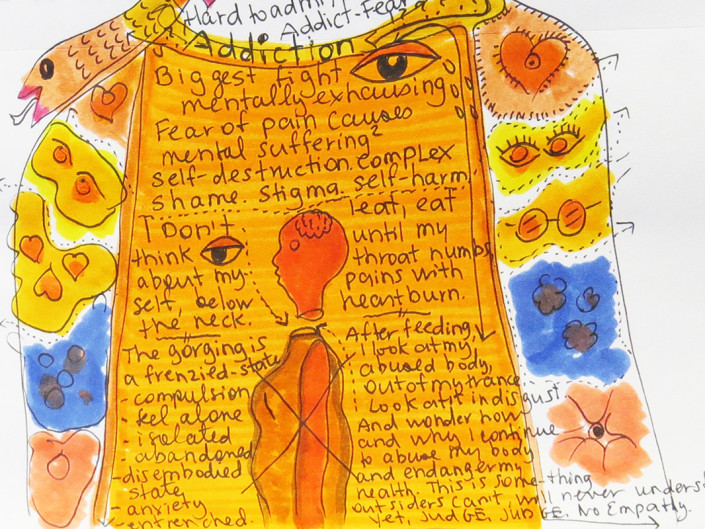 Hard to admit
Addict-Fear
Addiction
Biggest fight
mentally exhausing
Fear of pain causes
mental suffering
self-destruction complex
shame. stigma. self-harm
I Don't
think
about my
self, below
the neck.
I eat, eat
until my
throat numbs
pains with
heartburn.
The gorging is
a frenzied-state
- compulsion
feel alone
- isolated
- abandoned
- disembodied
state
- anxiety
entrenched.
After feeding,
I look at my
abused body,
out of my trance
I Look at it in disgust
And wonder how
and why I continue
to abuse my body
and endanger my
health. This is some-thing
outsiders can't will never underst
yet, judGE, JUDGE. No Empathy.